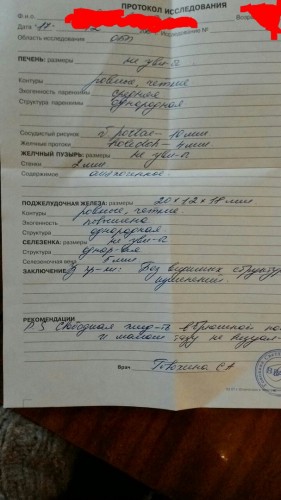 ПРОТОКОЛ ИССЛЕДОВАНИЯ
Ф.и.о.
Дата 17. Исследование №
Область исследования ОБП
ПЕЧЕНЬ: размеры не ув-а
Контуры ровные, четкие
Эхогенность паренхимы средняя
Структура паренхимы однородная
Сосудистый рисунок v. portae - 10 мм
Желчные протоки holedoh - 4 мм
ЖЕЛЧНЫЙ ПУЗЫРЬ: размеры не ув-а
Стенки 2 мм
Содержимое
ПОДЖЕЛУДОЧНАЯ ЖЕЛЕЗА: размеры 20х12х18 мм
Контуры ровные, четкие
Эхогенность повышена
Структура однородная
СЕЛЕЗЕНКА: размеры не ув-а
Структура
Селезеночная вена 5 мм
ЗАКЛЮЧЕНИЕ: Без видимых структур
РЕКОМЕНДАЦИИ
P.S Свободная жид-ть в брюшной по
и малом тазу не визуал
Врач